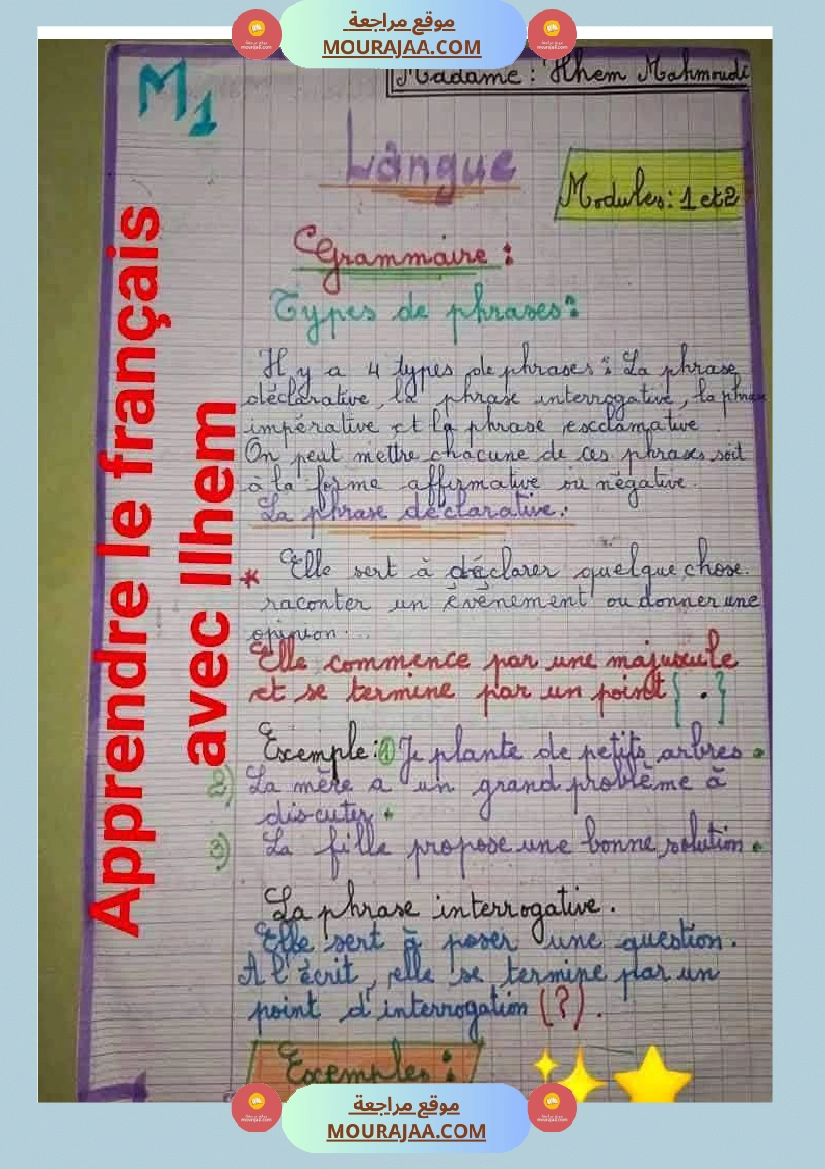 موقع مراجعة
MOURAJAA.COM
Madame : Ilhem Mahmoudi
M1
Langue
Modules: 1 et 2
Grammaire :
Types de phrases :
Il y a 4 types de phrases : La phrase
déclarative, la phrase interrogative, la phrase
impérative et la phrase exclamative.
On peut mettre chacune de ces phrases soit
à la forme affirmative ou négative.
La phrase déclarative :
* Elle sert à déclarer quelque chose.
raconter un évènement ou donner une
opinion...
Elle commence par une majuscule
et se termine par un point { . }
Exemple : 1 Je plante de petits arbres.
2) La mère a un grand problème à
discuter.
3) La fille propose une bonne solution.
La phrase interrogative.
Elle sert à poser une question.
A l'écrit, elle se termine par un
point d'interrogation (?).
Exemples :
Apprendre le français
avec Ilhem
موقع مراجعة
MOURAJAA.COM